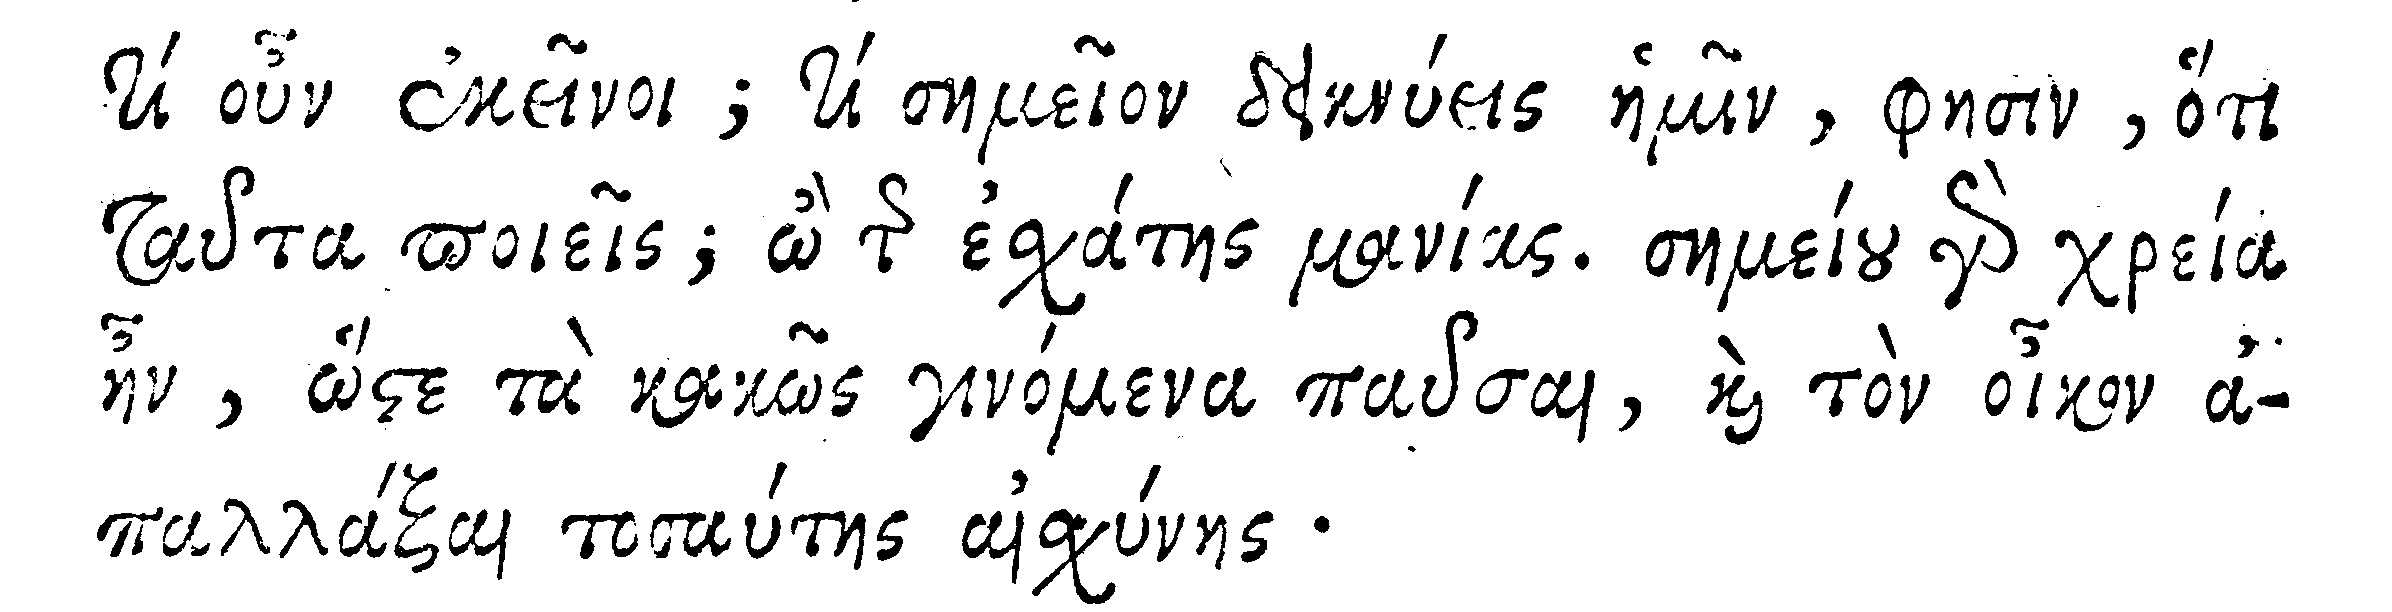 Τί οὖν ἐκεῖνοι; Τί σημεῖον δεικνύεις ἡμῖν, φησιν, ὅτι
ταῦτα ποιεῖς; ὢ τῆς ἐσχάτης μανίας. σημείου γὰρ χρεία
ἦν, ὥστε τὰ κακῶς γινόμενα παῦσαι, καὶ τὸν οἶκον ἀ-
παλλάξαι τοσαύτης αἰσχύνης.